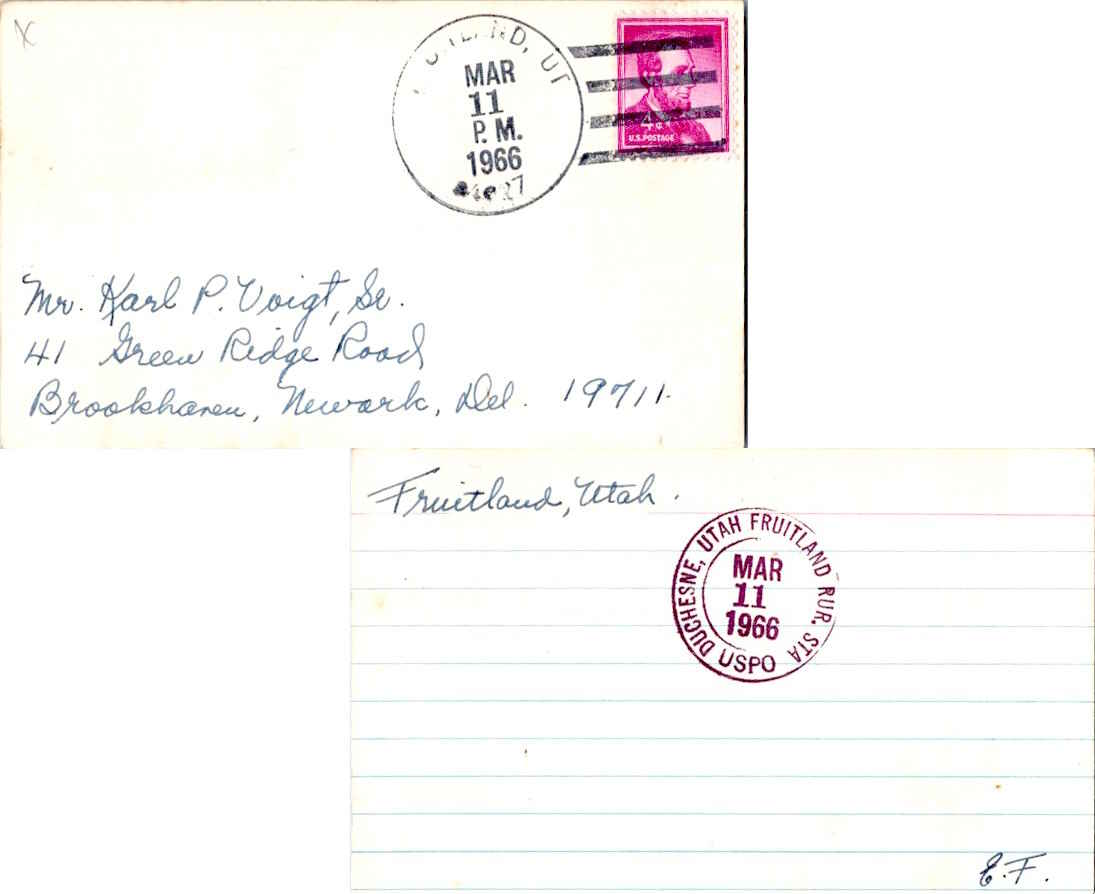 MAR
11
P.M.
1966
4¢
U.S.POSTAGE
Mr. Karl P. Voigt, Sr.
41 Green Ridge Road
Brookhaven, Newark, Del. 19711.
Fruitland, Utah.
DUCHESNE, UTAH FRUITLAND RUR. STA
MAR
11
1966
USPO
E.F.